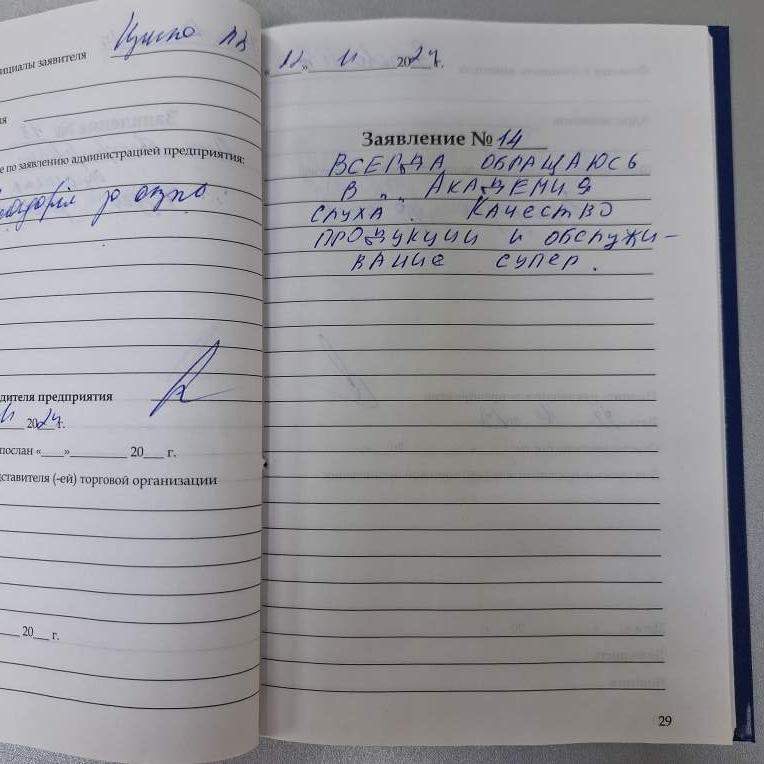 ициалы заявителя
ия
е по заявлению администрацией предприятия:
за отзыв
дителя предприятия
11 2024г.
послан «___»________ 20___ г.
ставителя (-ей) торговой организации
___ 20___ г.
« 12 » 11 2024г.
Заявление № 14
ВСЕГДА ОБРАЩАЮСЬ
В „ АКАДЕМИЯ
СЛУХА". КАЧЕСТВО
ПРОДУКЦИИ И ОБСЛУЖИ-
ВАНИЕ СУПЕР.
29